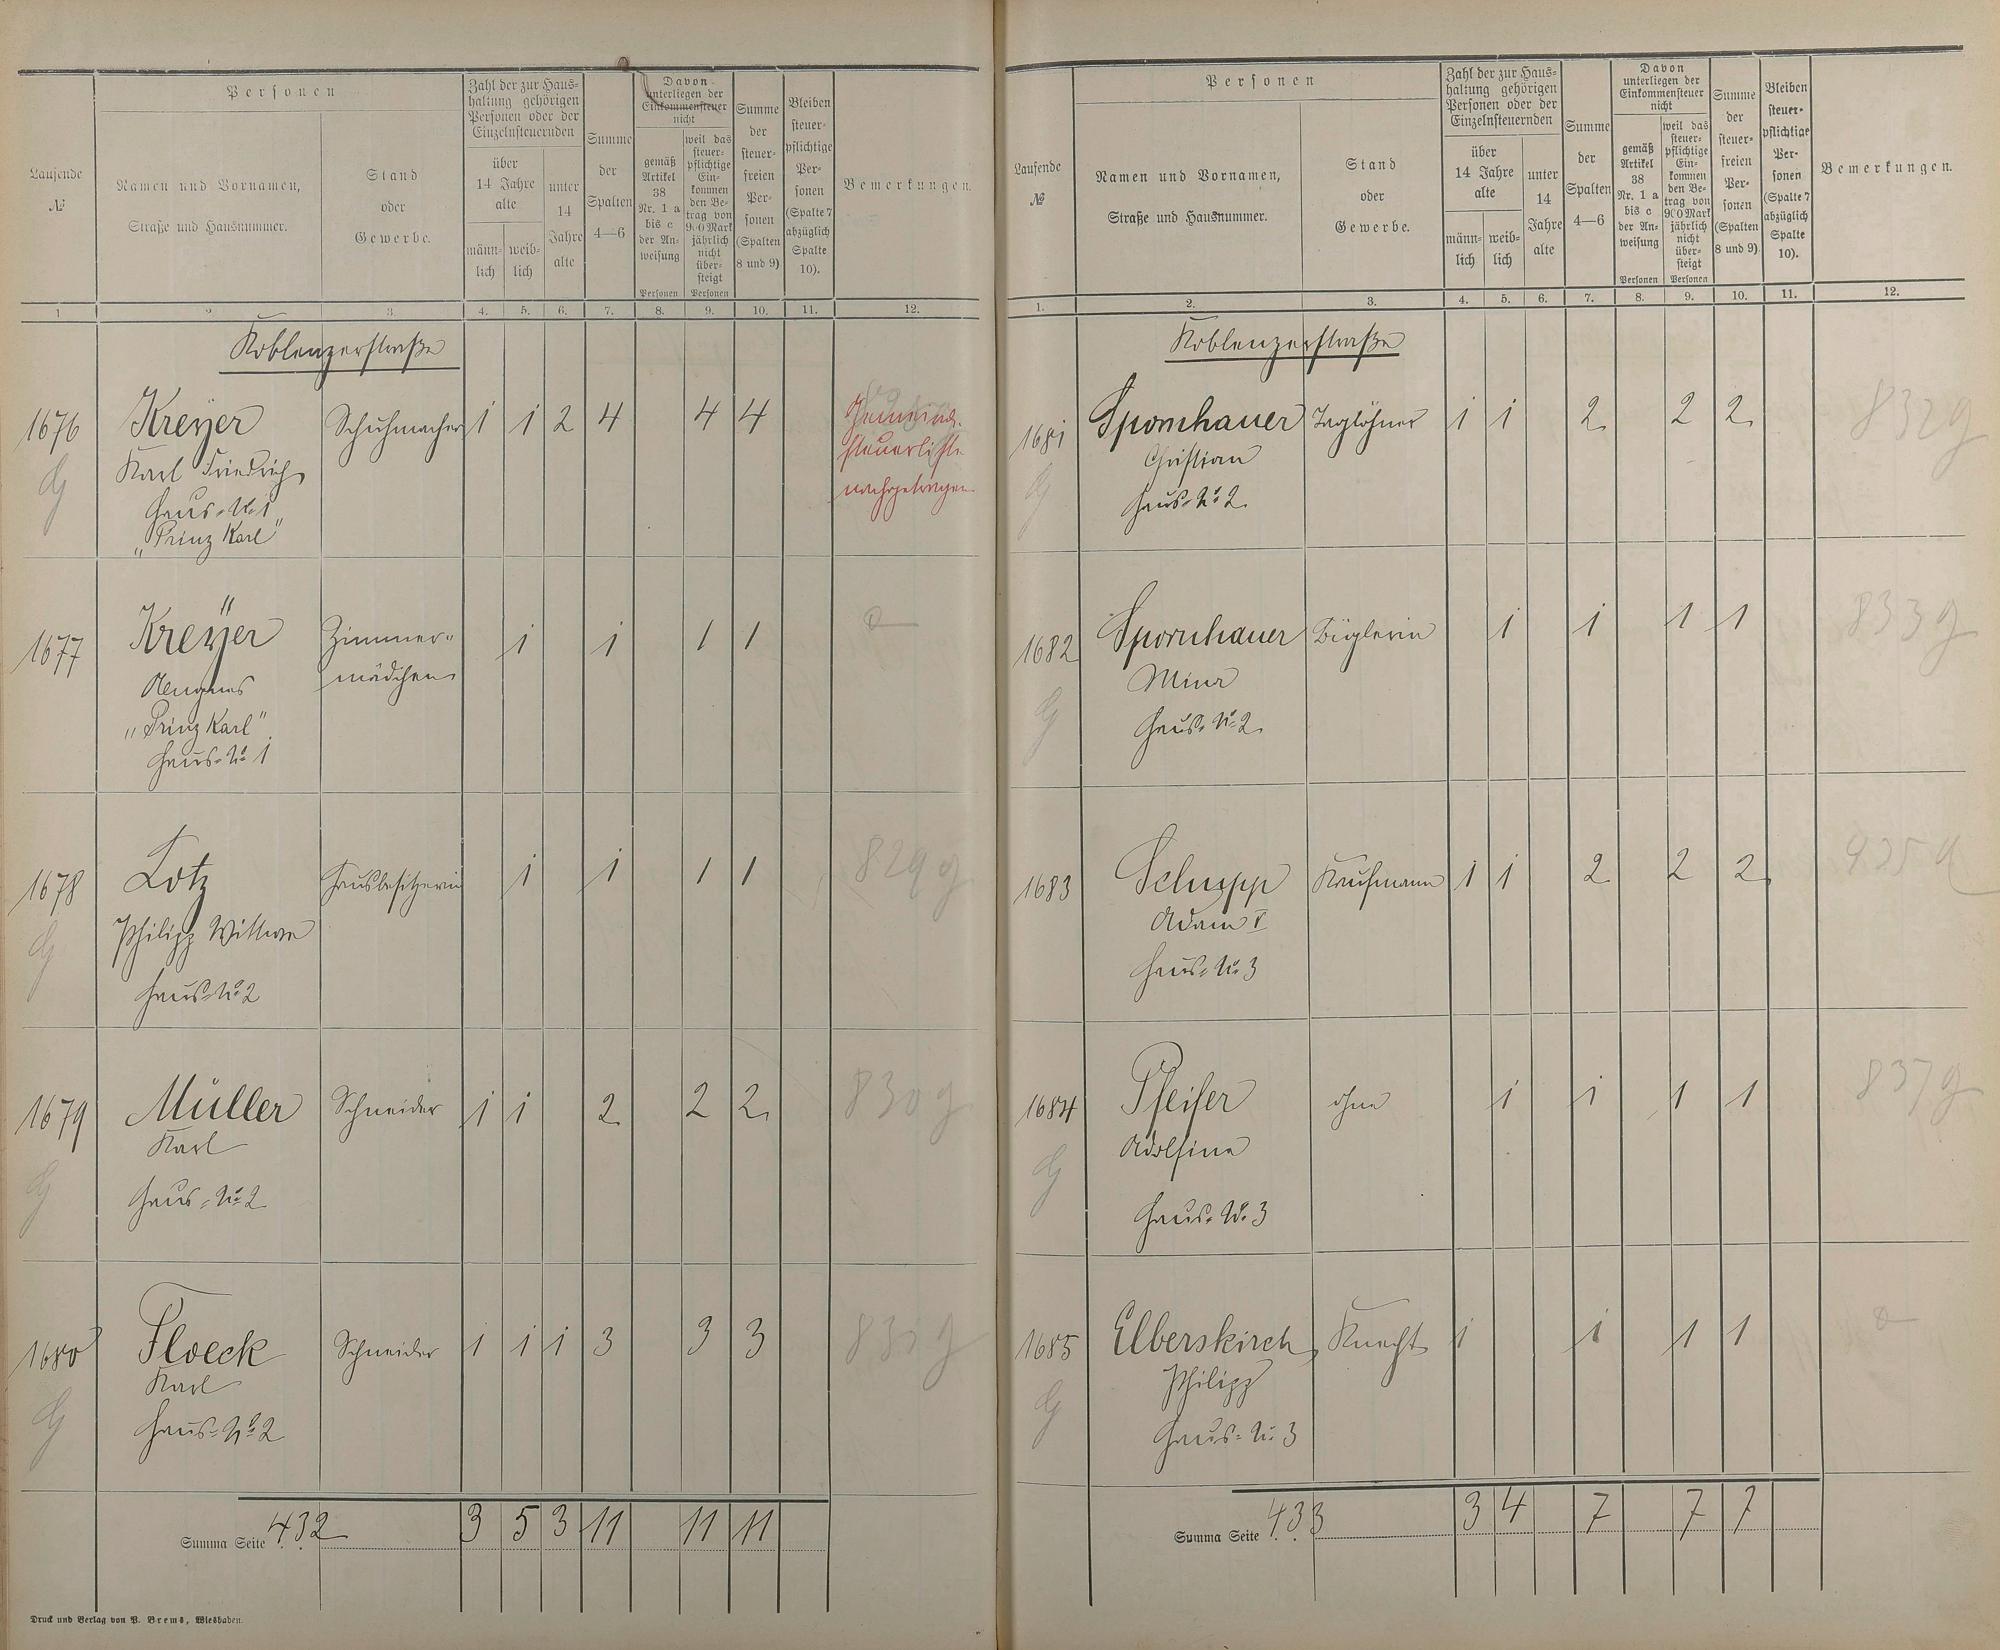 Laufende
№
Personen
Namen und Vornamen,
Straße und Hausnummer.
Stand
oder
Gewerbe.
Zahl der zur Haus-
haltung gehörigen
Personen oder der
Einzelnsteuernden
über
14 Jahre
alte
männ-
lich
weib-
lich
unter
14
Jahre
alte
Summe
der
Spalten
4—6
Davon
unterliegen der
Einkommensteuer
nicht
gemäß
Artikel
38
Nr. 1 a
bis c
der An-
weisung
Personen
weil das
steuer-
pflichtige
Ein-
kommen
den Be-
trag von
900 Mark
jährlich
nicht
über-
steigt
Personen
Summe
der
steuer-
freien
Per-
sonen
(Spalten
8 und 9)
Bleiben
steuer-
pflichtige
Per-
sonen
(Spalte 7
abzüglich
Spalte
10).
Bemerkungen.
1 2 3. 4. 5. 6. 7. 8. 9. 10. 11. 12.
Koblenzerstraße
1676 Kreyer Schuhmacher 1 1 2 4 4 4 Gemeinde-
steuerliste
nachgetragen
Karl Friedrich
Haus-No 1
"Prinz Karl"
1677 Kreyer Zimmer- 1 1 1 1
mädchen
"Prinz Karl"
Haus-No 1
1678 Lotz Hausbesitzerin 1 1 1 1 829 g
Philipp Wittwe
Haus-No 2
1679 Müller Schneider 1 1 2 2 2 830 g
Karl
Haus-No 2
1680 Floeck Schneider 1 1 1 3 3 3 831 g
Karl
Haus-No 2
Summa Seite 432 3 5 3 11 11 11
Druck und Verlag von P. Brems, Wiesbaden.
Laufende
№
Personen
Namen und Vornamen,
Straße und Hausnummer.
Stand
oder
Gewerbe.
Zahl der zur Haus-
haltung gehörigen
Personen oder der
Einzelnsteuernden
über
14 Jahre
alte
männ-
lich
weib-
lich
unter
14
Jahre
alte
Summe
der
Spalten
4—6
Davon
unterliegen der
Einkommensteuer
nicht
gemäß
Artikel
38
Nr. 1 a
bis c
der An-
weisung
Personen
weil das
steuer-
pflichtige
Ein-
kommen
den Be-
trag von
900 Mark
jährlich
nicht
über-
steigt
Personen
Summe
der
steuer-
freien
Per-
sonen
(Spalten
8 und 9)
Bleiben
steuer-
pflichtige
Per-
sonen
(Spalte 7
abzüglich
Spalte
10).
Bemerkungen.
1. 2. 3. 4. 5. 6. 7. 8. 9. 10. 11. 12.
Koblenzerstraße
1681 Spornhauer Taglöhner 1 1 2 2 2 832 g
Christian
Haus-No 2
1682 Spornhauer Büglerin 1 1 1 1 833 g
Mina
Haus-No 2
1683 Schupp Kaufmann 1 1 2 2 2
Adam V
Haus-No 3
1684 Pfeifer ohne 1 1 1 1 837 g
Adolfine
Haus-No 3
1685 Elberskirch, Knecht 1 1 1 1
Philipp
Haus-No 3
Summa Seite 433 3 4 7 7 7